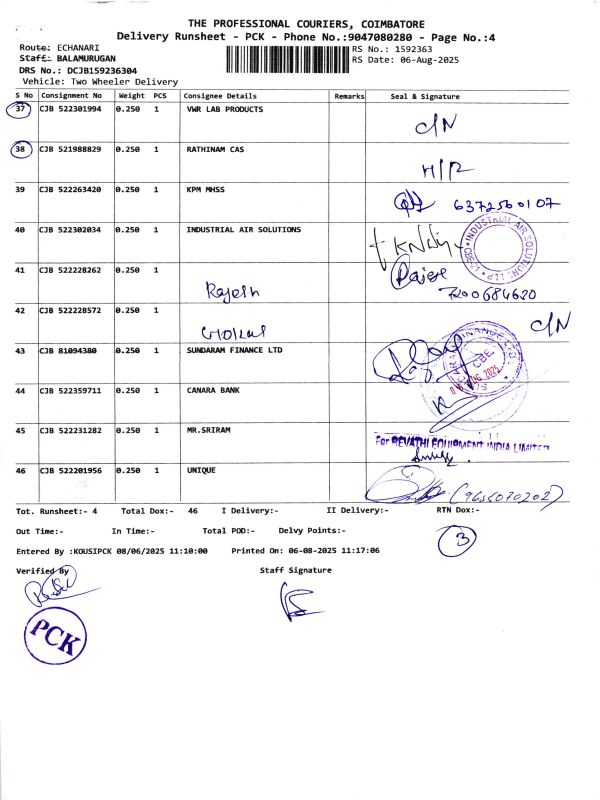 THE PROFESSIONAL COURIERS, COIMBATORE
Delivery Runsheet - PCK - Phone No.:9047080280 - Page No.:4
Route: ECHANARI
RS No.: 1592363
Staff: BALAMURUGAN
RS Date: 06-Aug-2025
DRS No.: DCJB159236304
Vehicle: Two Wheeler Delivery
S No Consignment No Weight PCS Consignee Details Remarks Seal & Signature
37 CJB 522301994 0.250 1 VWR LAB PRODUCTS
C/N
38 CJB 521988829 0.250 1 RATHINAM CAS
H/R
39 CJB 522263420 0.250 1 KPM MHSS
6372560107
40 CJB 522302034 0.250 1 INDUSTRIAL AIR SOLUTIONS
INDUSTRIAL AIR SOLUTIONS LLP
41 CJB 522228262 0.250 1
Rajesh
7200684630
42 CJB 522228572 0.250 1
Gokul
C/N
43 CJB 81094380 0.250 1 SUNDARAM FINANCE LTD
CBE
06 2025
44 CJB 522359711 0.250 1 CANARA BANK
45 CJB 522231282 0.250 1 MR.SRIRAM
For REVATHI EQUIPMENT INDIA LIMITED
46 CJB 522201956 0.250 1 UNIQUE
(9655070202)
Tot. Runsheet:- 4 Total Dox:- 46 I Delivery:- II Delivery:- RTN Dox:-
Out Time:- In Time:- Total POD:- Delvy Points:-
3
Entered By :KOUSIPCK 08/06/2025 11:10:00 Printed On: 06-08-2025 11:17:06
Verified By Staff Signature
PCK